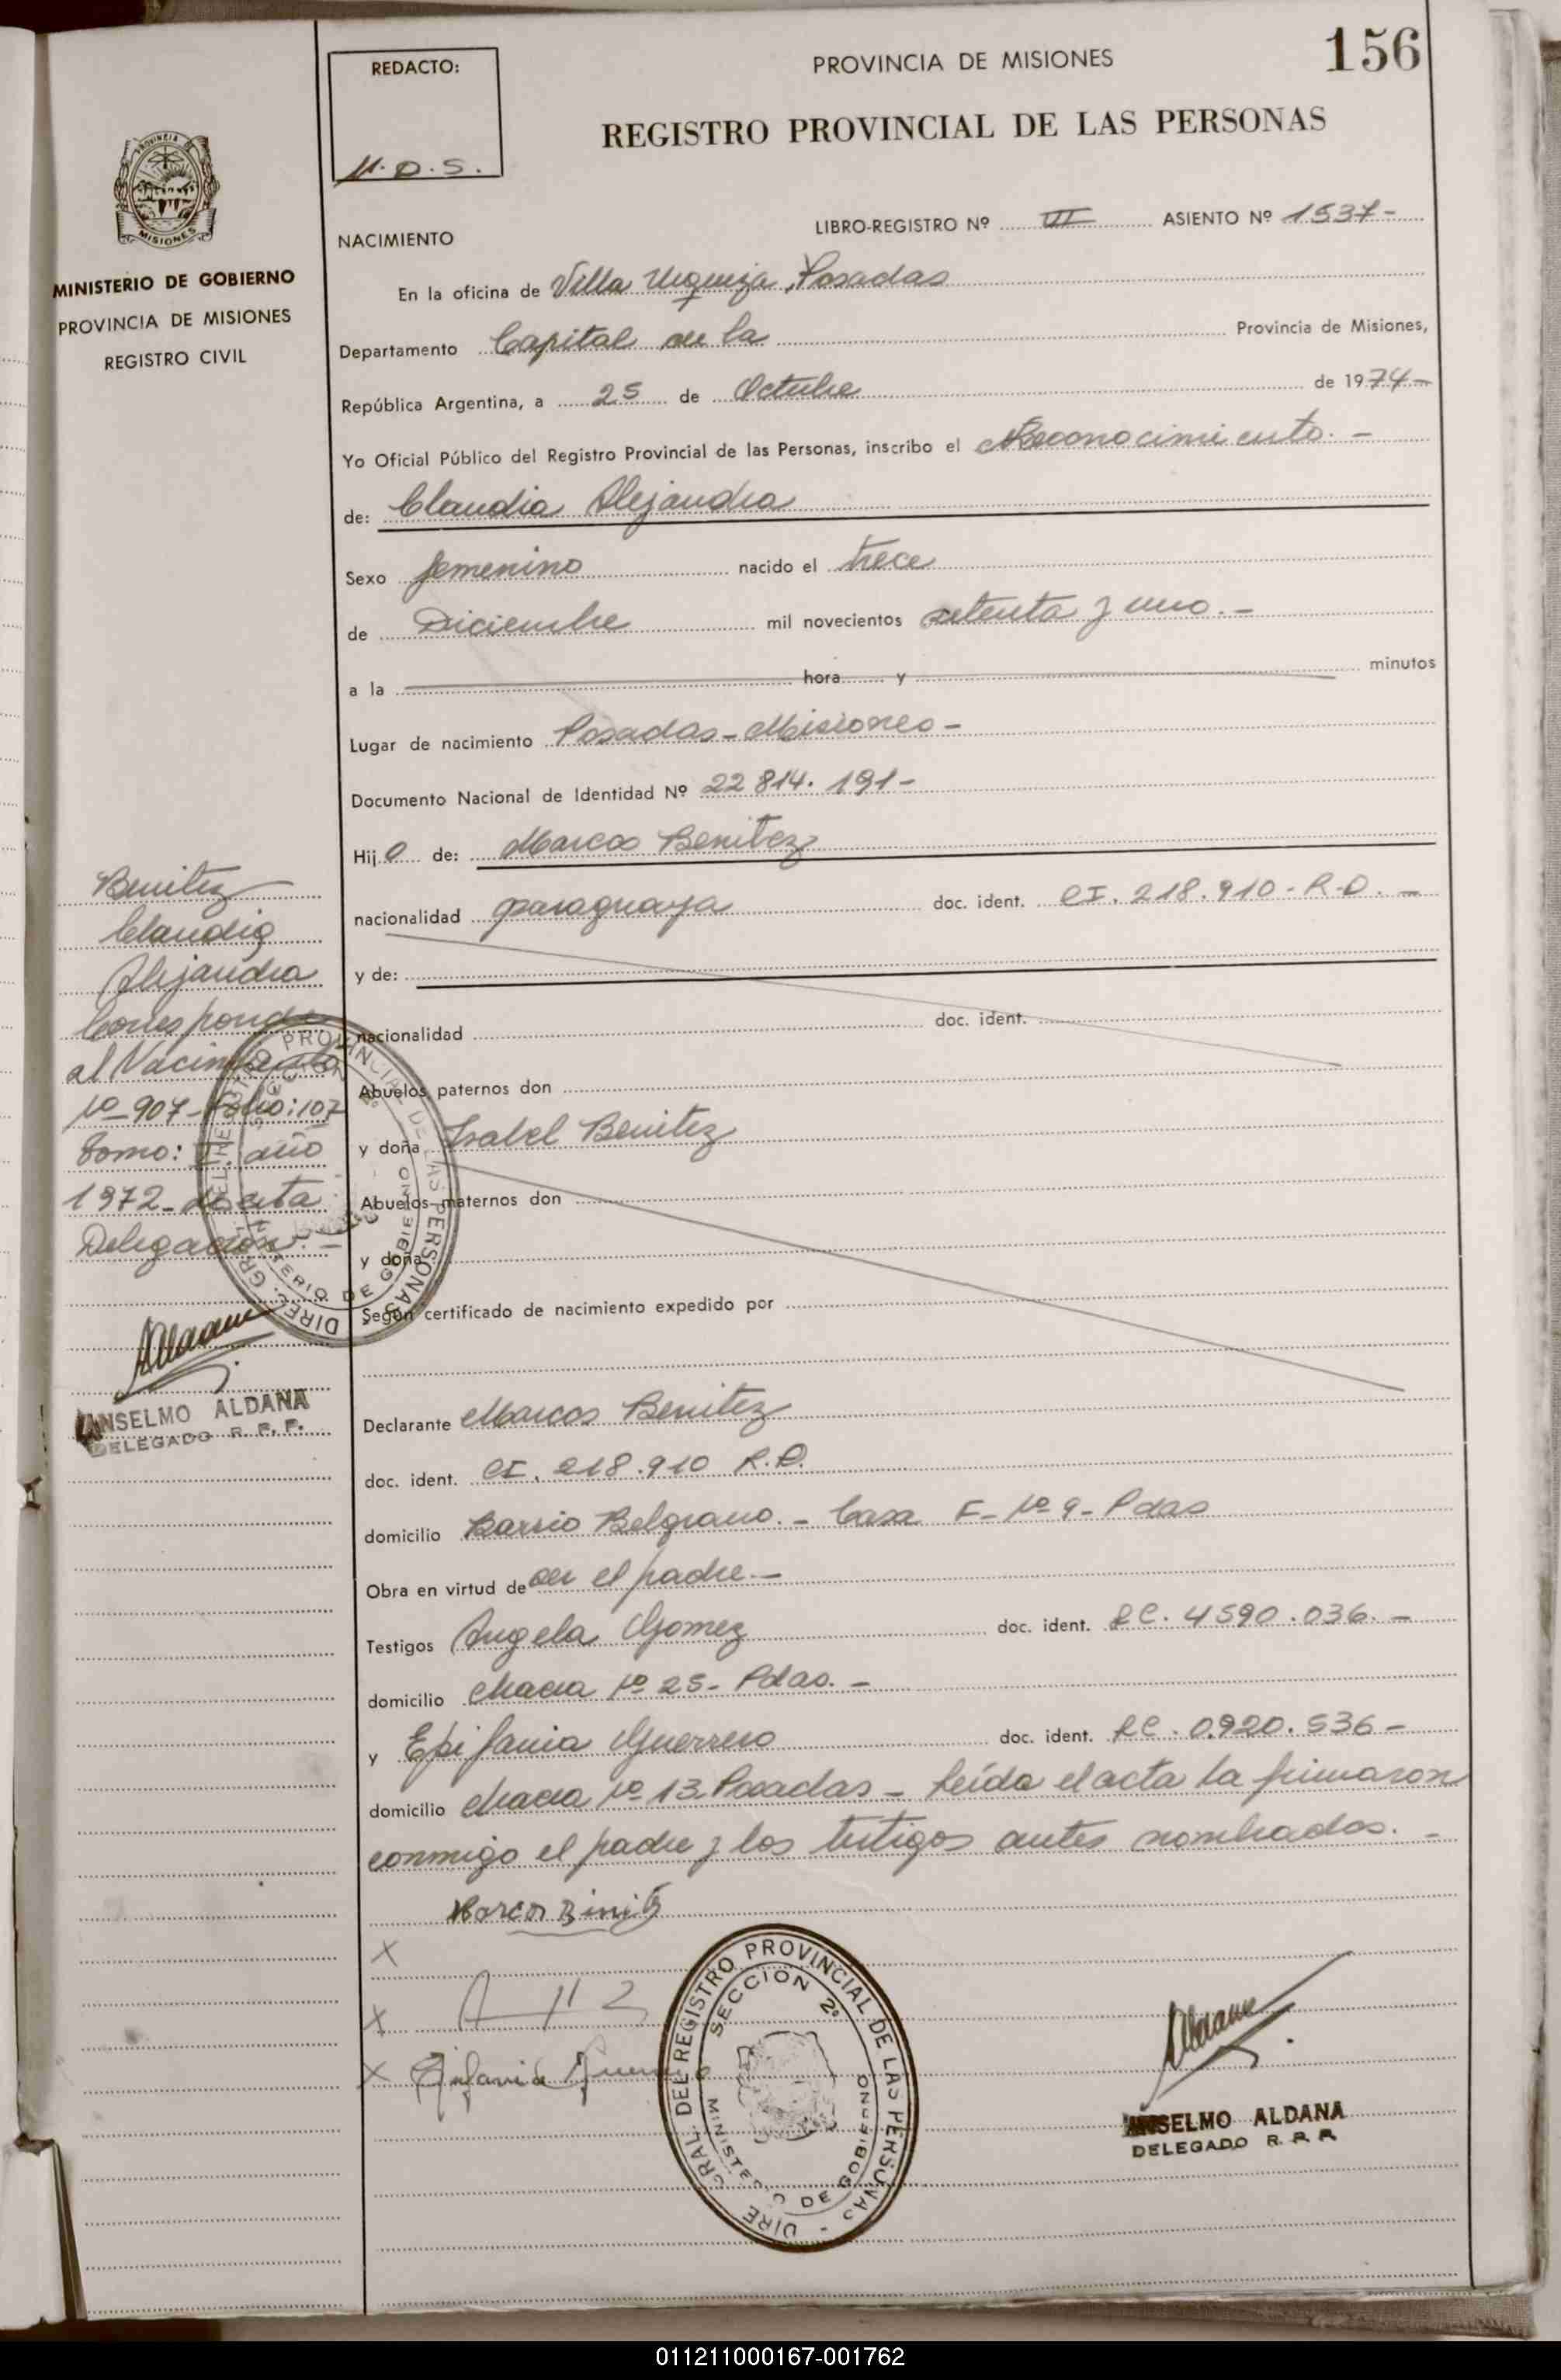 156
REDACTO:
M.O.S.
PROVINCIA DE MISIONES
REGISTRO PROVINCIAL DE LAS PERSONAS
LIBRO-REGISTRO Nº VII ASIENTO Nº 1537-
NACIMIENTO
En la oficina de Villa Urquiza, Posadas
Departamento Capital de la Provincia de Misiones,
República Argentina, a 25 de Octubre de 1974-
Yo Oficial Público del Registro Provincial de las Personas, inscribo el Reconocimiento.-
de: Claudia Alejandra
Sexo femenino nacido el trece
de Diciembre mil novecientos setenta y uno.-
a la hora y minutos
Lugar de nacimiento Posadas-Misiones-
Documento Nacional de Identidad Nº 22 814.191-
Hijo de: Marcos Benitez
nacionalidad paraguaya doc. ident. CI. 218.910-R.O.-
y de:
nacionalidad doc. ident.
Abuelos paternos don
y doña Isabel Benitez
Abuelos maternos don
y doña
Según certificado de nacimiento expedido por
Declarante Marcos Benitez
doc. ident. CI. 218.910 R.O.
domicilio Barrio Belgrano.- Casa F-Nº 9-Pdas
Obra en virtud de ser el padre.-
Testigos Angela Gomez doc. ident. LC. 4590.036.-
domicilio Chacra Nº 25-Pdas.-
y Epifania Guerrero doc. ident. LC. 0.920.536-
domicilio Chacra Nº 13 Posadas- Leída el acta la firmaron
conmigo el padre y los testigos antes nombrados.-
Marcos Binitz
X
X
X Epifania Guerrero
DIREC. GRAL. DEL REGISTRO PROVINCIAL DE LAS PERSONAS -
SECCION 2º
MINISTERIO DE GOBIERNO
Aldana
ANSELMO ALDANA
DELEGADO R. P. P.
PROVINCIA DE MISIONES
MINISTERIO DE GOBIERNO
PROVINCIA DE MISIONES
REGISTRO CIVIL
Benitez
Claudia
Alejandra
Corresponde
al Nacimiento
Nº 907-Folio: 107
Tomo: II. año
1972-de esta
Delegación.-
DIREC. GRAL. DEL REGISTRO PROVINCIAL DE LAS PERSONAS
MINISTERIO DE GOBIERNO
Aldana
ANSELMO ALDANA
DELEGADO R. P. P.
011211000167-001762